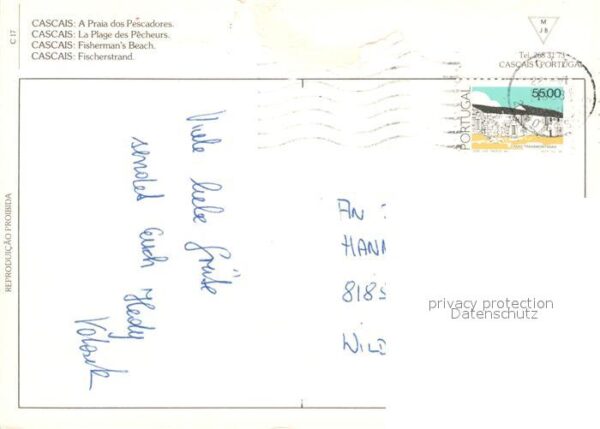 C 17
CASCAIS: A Praia dos Pescadores.
CASCAIS: La Plage des Pêcheurs.
CASCAIS: Fisherman's Beach.
CASCAIS: Fischerstrand.
M
JB
Tel. 268 31 73
CASCAIS - PORTUGAL
PORTUGAL
55.00
REPRODUÇÃO PROIBIDA
Viele liebe Grüße
sendet Euch Hedy
AN
HANN
818
WILD
privacy protection
Datenschutz